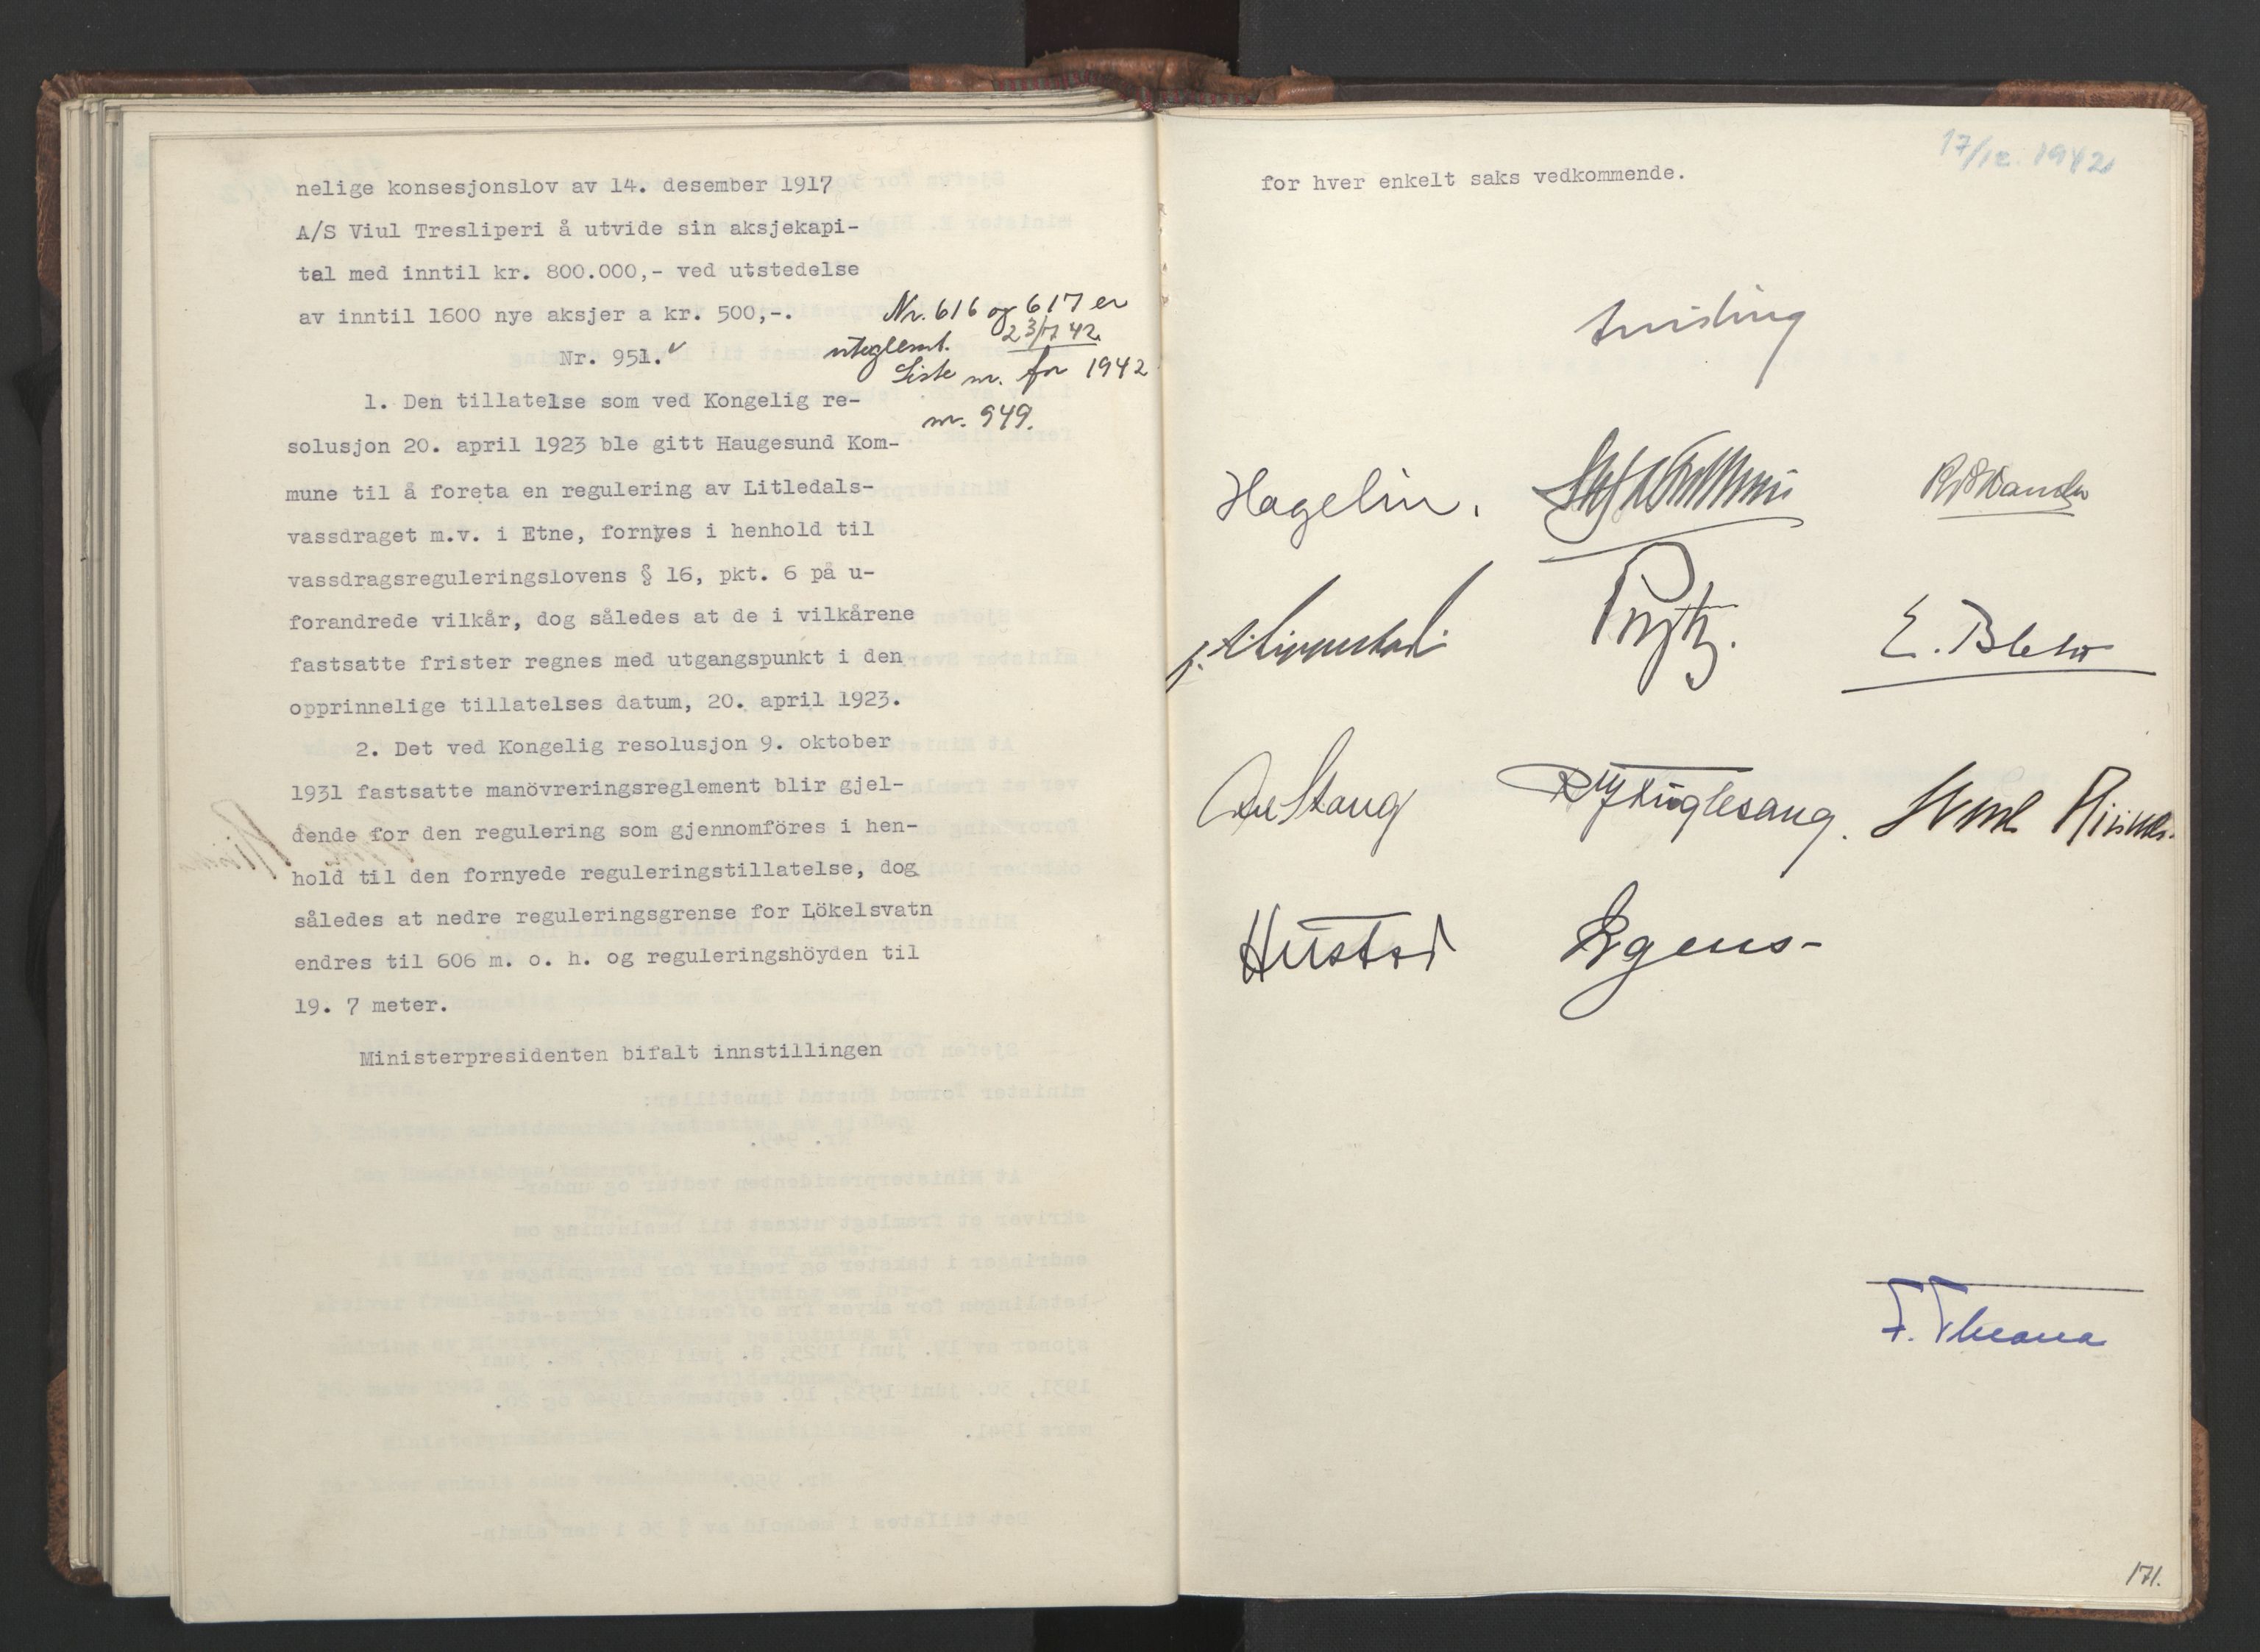 nelige konsesjonslov av 14. desember 1917
A/S Viul Tresliperi å utvide sin aksjekapi-
tal med inntil kr. 800.000,- ved utstedelse
av inntil 1600 nye aksjer a kr. 500,-.
Nr. 616 og 617 er
uteglemt. 23/7 42.
Liste nr. for 1942
nr. 949.
Nr. 951.
1. Den tillatelse som ved Kongelig re-
solusjon 20. april 1923 ble gitt Haugesund Kom-
mune til å foreta en regulering av Litledals-
vassdraget m.v. i Etne, fornyes i henhold til
vassdragsreguleringslovens § 16, pkt. 6 på u-
forandrede vilkår, dog således at de i vilkårene
fastsatte frister regnes med utgangspunkt i den
opprinnelige tillatelses datum, 20. april 1923.
2. Det ved Kongelig resolusjon 9. oktober
1931 fastsatte manövreringsreglement blir gjel-
dende for den regulering som gjennomföres i hen-
hold til den fornyede reguleringstillatelse, dog
således at nedre reguleringsgrense for Lökelsvatn
endres til 606 m. o. h. og reguleringshöyden til
19. 7 meter.
Ministerpresidenten bifalt innstillingen
17/12. 1942
for hver enkelt saks vedkommende.
Quisling
Hagelin.
Prytz.
Axel Stang
R J Fuglesang.
Hustad
171.